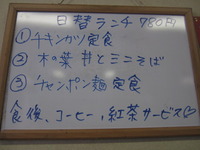 日替ランチ 780円
①チキンカツ定食
②木の葉丼とミニそば
③チャンポン麺定食
食後、コーヒー、紅茶サービス♡